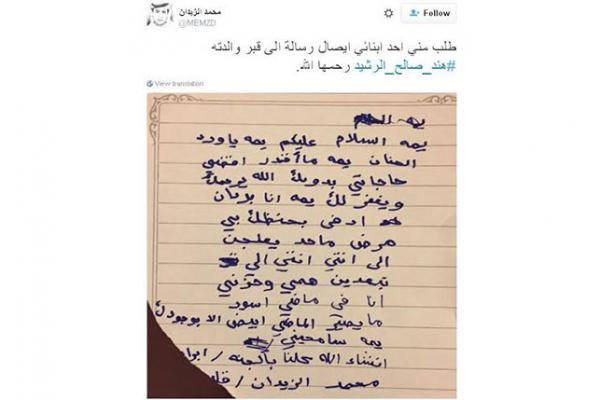 محمد الزيدان
@MEMZD
Follow
طلب مني احد ابنائي ايصال رسالة الى قبر والدته
#هند_صالح_الرشيد رحمها الله.
View translation
يمه
يمه السلام عليكم يمه ياورد
الحنان يمه ماأقدر اقضي
حاجاتي بدونك الله يرحمك
ويغفر لك يمه انا
ادخى بحضنك بي
مرض ماحد يعلجن
الى انتي انتي الي
تبعدين همي وحزني
انا في ماضي اسود
مايصير الماضي ابيض الا بوجودك
يمه سامحيني
انشاء الله محلنا بالجنه / ابو
محمد الزيدان /